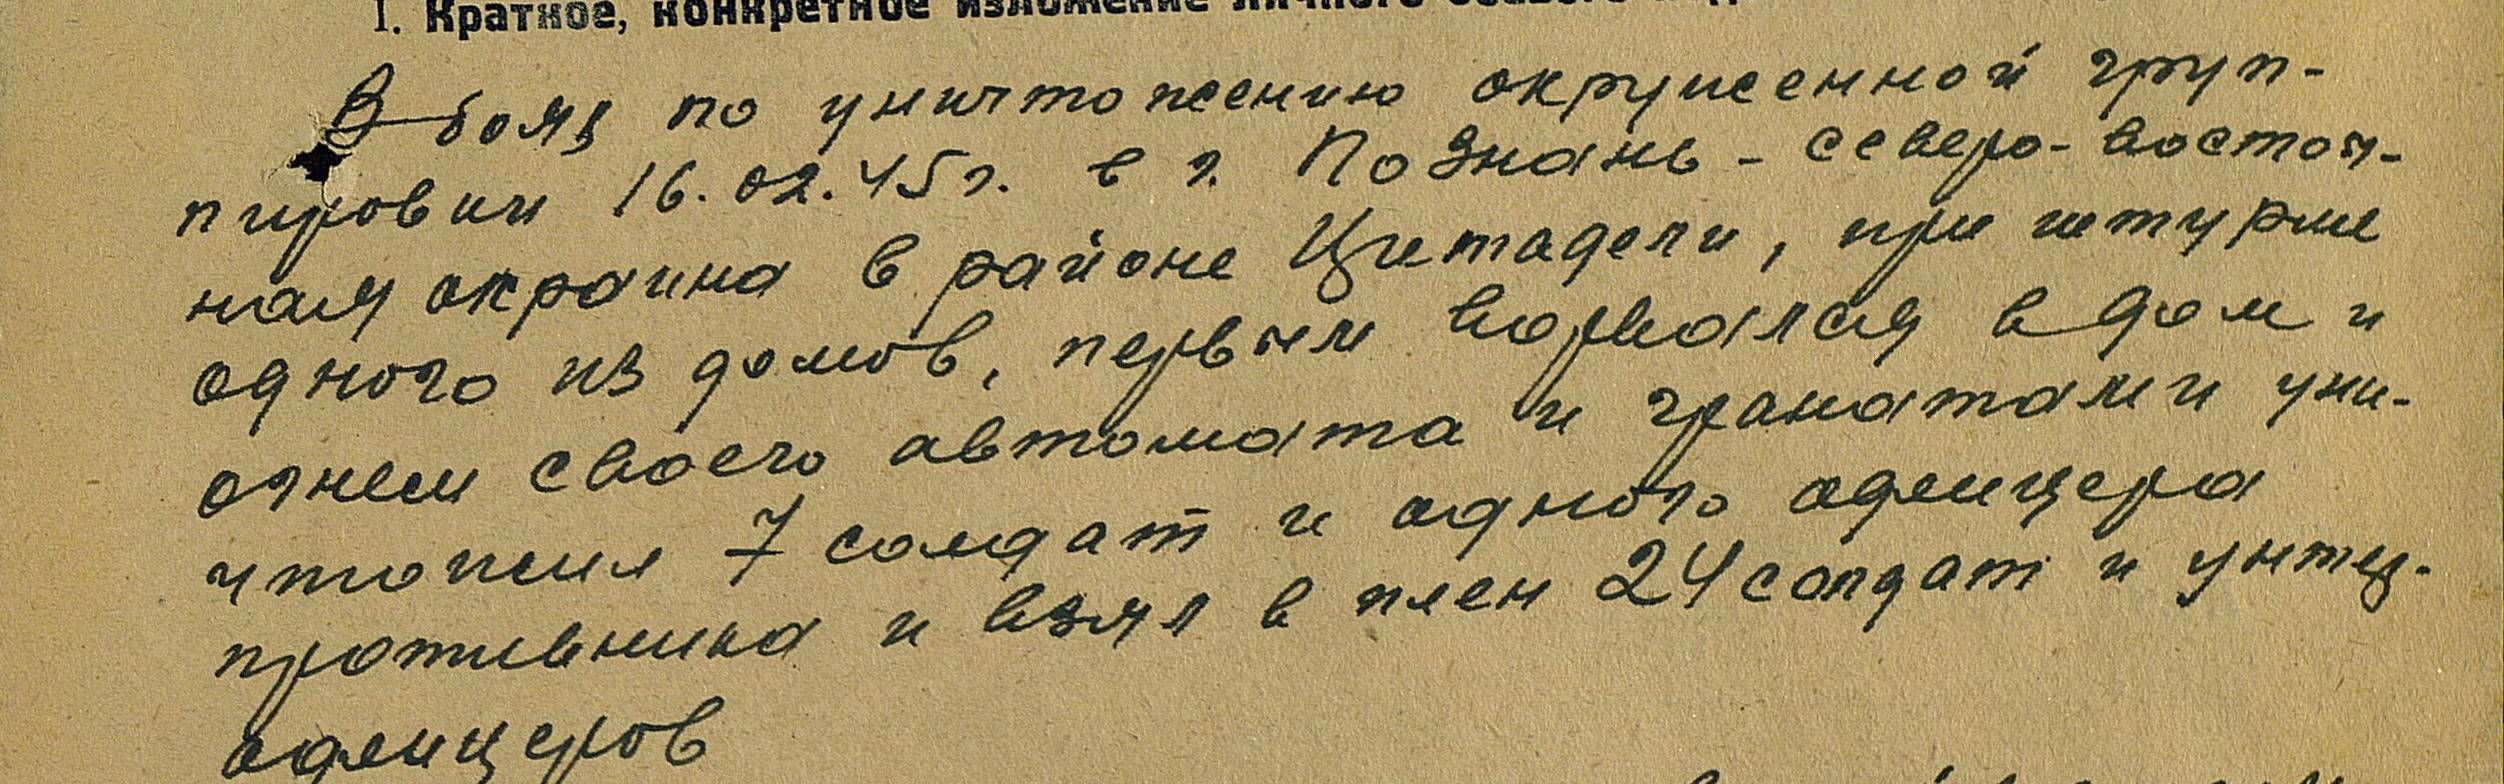 1. Краткое, конкретное изложение личного боевого
В боях по уничтожению окруженной груп-
пировки 16.02.45г. в г. Познань - северо-восточ-
ная окраина в районе Цитадели, при штурме
одного из домов, первым ворвался в дом и
огнем своего автомата и гранатами уни-
чтожил 7 солдат и одного офицера
противника и взял в плен 24 солдат и унтер.
офицеров